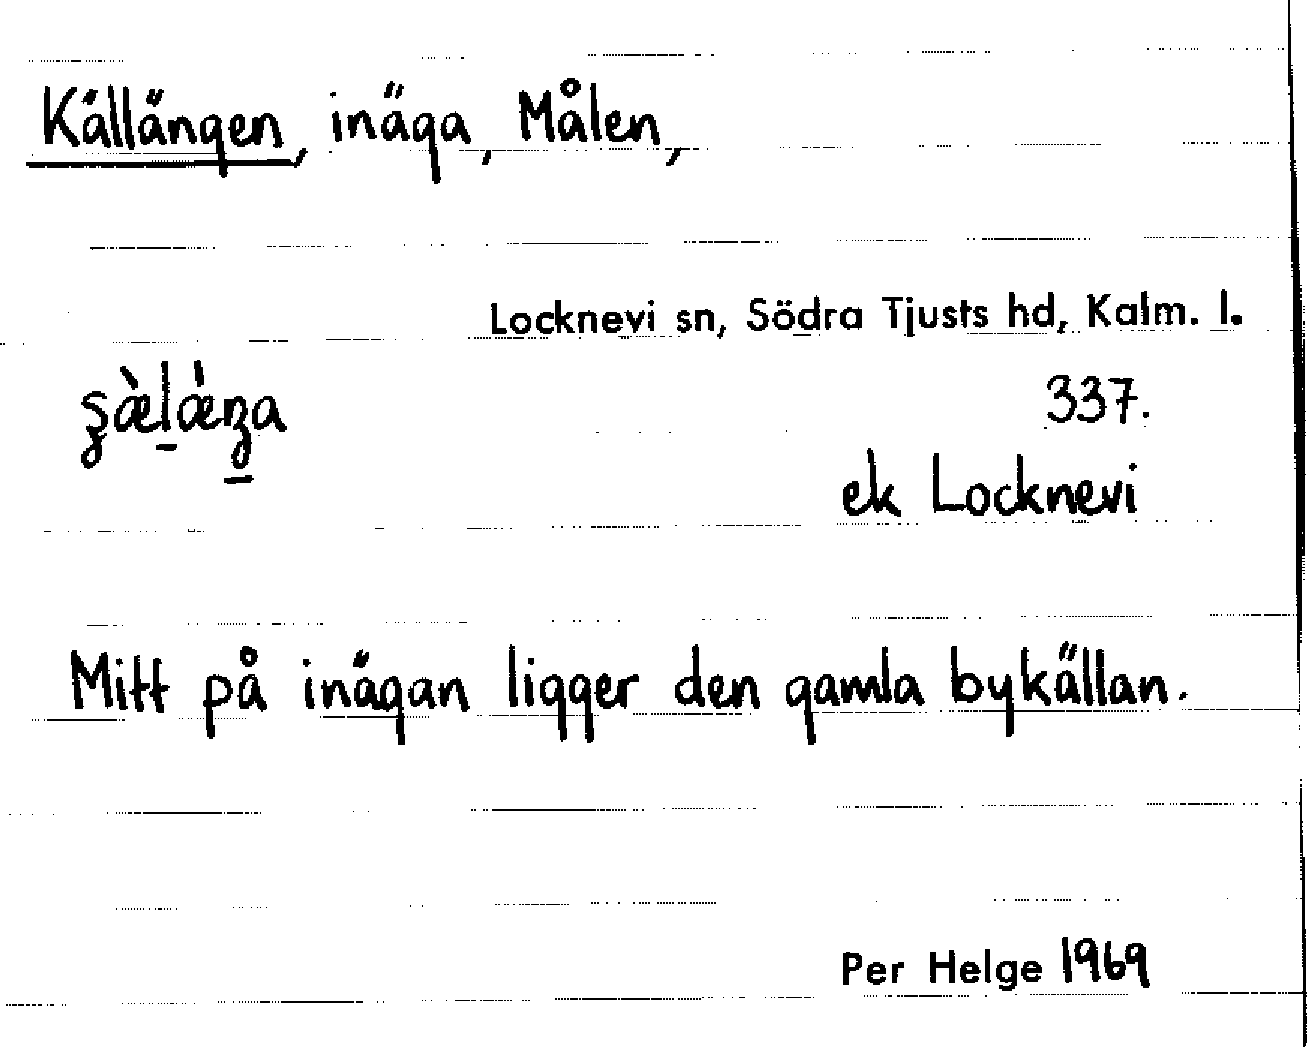 Källängen, inäga, Målen,
Locknevi sn, Södra Tjusts hd, Kalm. l.
337.
ek Locknevi
Mitt på inägan ligger den gamla bykällan.
Per Helge 1969